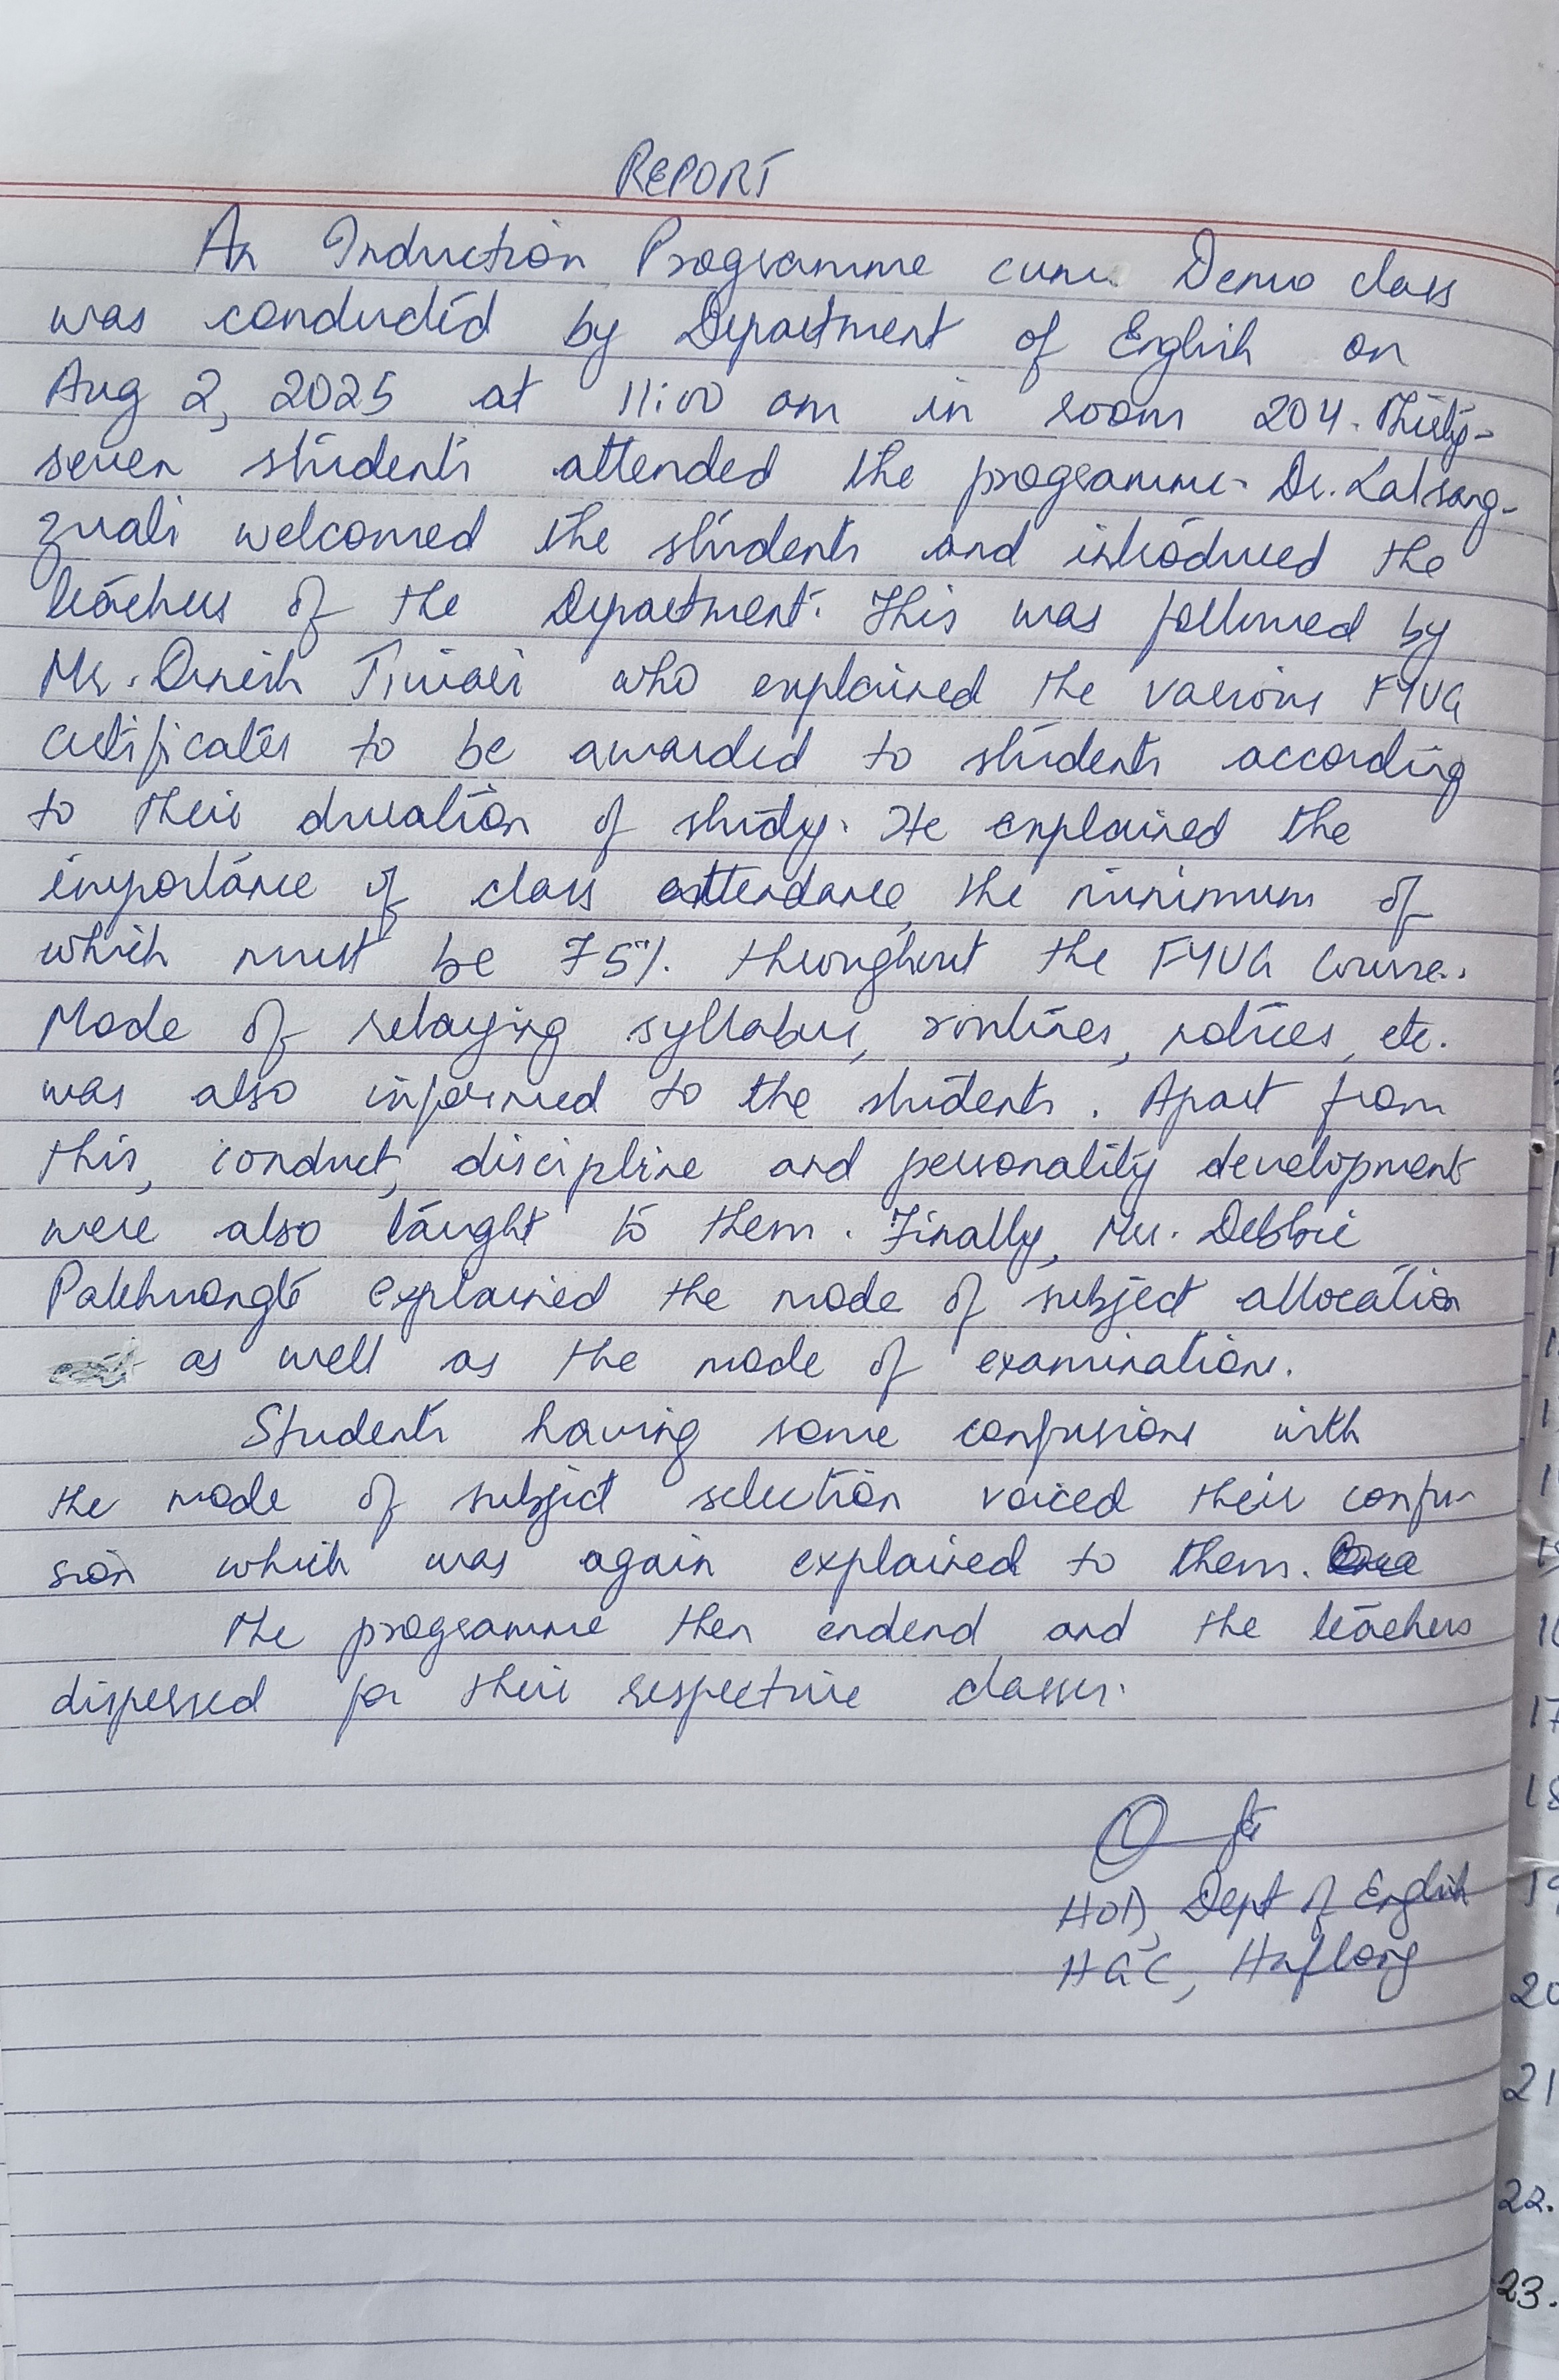 REPORT
An Induction Programme cum Demo class
was conducted by Department of English on
Aug 2, 2025 at 11:00 am in room 204. Thirty-
seven students attended the programme. Dr. Lalsang-
zuali welcomed the students and introduced the
teachers of the Department. This was followed by
Mr. Dinesh Tiwari who explained the various FYUG
certificates to be awarded to students according
to their duration of study. He explained the
importance of class attendance, the minimum of
which must be 75% throughout the FYUG Course.
Mode of relaying syllabus, routines, notices, etc.
was also informed to the students. Apart from
this, conduct, discipline and personality development
were also taught to them. Finally, Mr. Debbie
Pakhuongte explained the mode of subject allocation
as well as the mode of examination.
Students having some confusions with
the mode of subject selection voiced their confu-
sion which was again explained to them.
The programme then endend and the teachers
dispersed for their respective classes.
HOD, Dept of English
HGC, Haflong
17
18
19
20
21
22.
23.